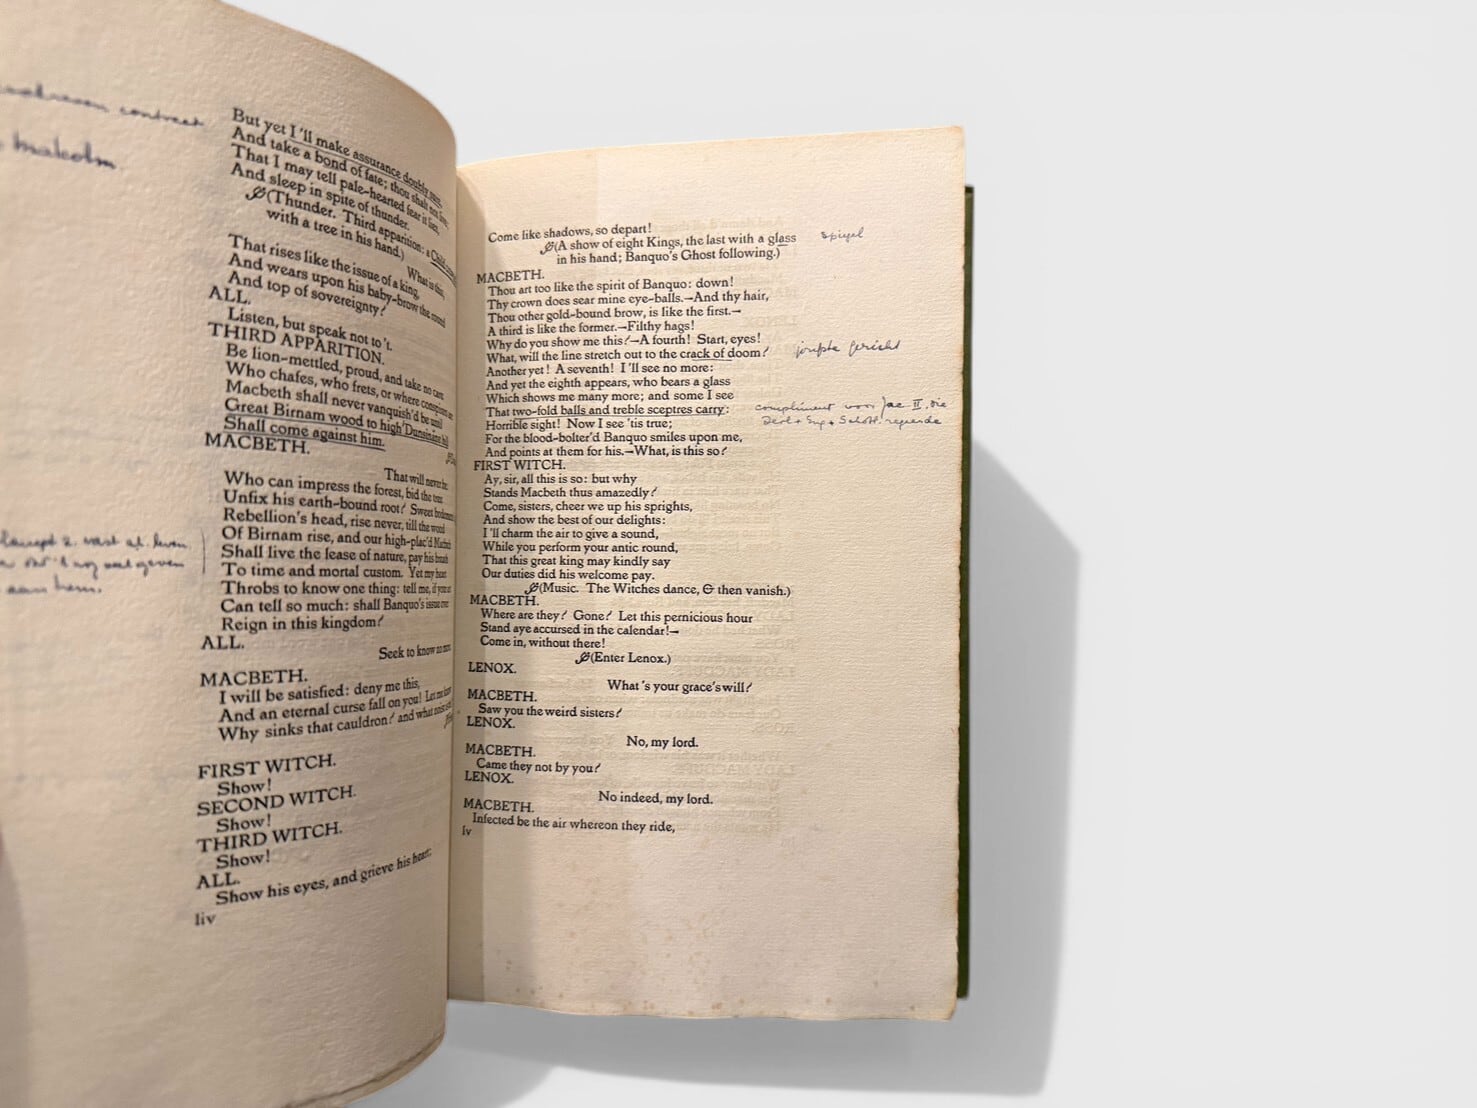 contract
malcolm
But yet I'll make assurance doubly sure,
And take a bond of fate; thou shalt not live;
That I may tell pale-hearted fear it lies,
And sleep in spite of thunder.
(Thunder. Third apparition: a Child
with a tree in his hand.)
What is this,
That rises like the issue of a king,
And wears upon his baby-brow the round
And top of sovereignty?
ALL.
Listen, but speak not to 't.
THIRD APPARITION.
Be lion-mettled, proud, and take no care
Who chafes, who frets, or where conspirers are
Macbeth shall never vanquish'd be until
Great Birnam wood to high Dunsinane hill
Shall come against him.
MACBETH.
That will never be:
Who can impress the forest, bid the tree
Unfix his earth-bound root? Sweet bodements
Rebellion's head, rise never, till the wood
Of Birnam rise, and our high-plac'd Macbeth
Shall live the lease of nature, pay his breath
To time and mortal custom. Yet my heart
Throbs to know one thing: tell me, if your art
Can tell so much: shall Banquo's issue ever
Reign in this kingdom?
ALL.
Seek to know no more.
MACBETH.
I will be satisfied: deny me this,
And an eternal curse fall on you! Let me know
Why sinks that cauldron? and what noise
FIRST WITCH.
Show!
SECOND WITCH.
Show!
THIRD WITCH.
Show!
ALL.
Show his eyes, and grieve his heart;
liv
Come like shadows, so depart!
(A show of eight Kings, the last with a glass spiegel
in his hand; Banquo's Ghost following.)
MACBETH.
Thou art too like the spirit of Banquo: down!
Thy crown does sear mine eye-balls.—And thy hair,
Thou other gold-bound brow, is like the first.—
A third is like the former.—Filthy hags!
Why do you show me this?—A fourth! Start, eyes!
What, will the line stretch out to the crack of doom?
Another yet! A seventh! I'll see no more:
And yet the eighth appears, who bears a glass
Which shows me many more; and some I see
That two-fold balls and treble sceptres carry: compliment voor Jac II, die
Horrible sight! Now I see 'tis true; regeerde
For the blood-bolter'd Banquo smiles upon me,
And points at them for his.—What, is this so?
FIRST WITCH.
Ay, sir, all this is so: but why
Stands Macbeth thus amazedly?
Come, sisters, cheer we up his sprights,
And show the best of our delights:
I'll charm the air to give a sound,
While you perform your antic round,
That this great king may kindly say
Our duties did his welcome pay.
(Music. The Witches dance, & then vanish.)
MACBETH.
Where are they? Gone? Let this pernicious hour
Stand aye accursed in the calendar!—
Come in, without there!
(Enter Lenox.)
LENOX.
What's your grace's will?
MACBETH.
Saw you the weird sisters?
LENOX.
No, my lord.
MACBETH.
Came they not by you?
LENOX.
No indeed, my lord.
MACBETH.
Infected be the air whereon they ride,
lv